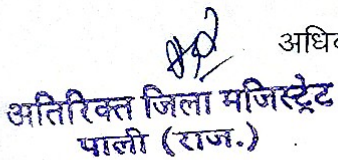 अधि
अतिरिक्त जिला मजिस्ट्रेट
पाली (राज.)